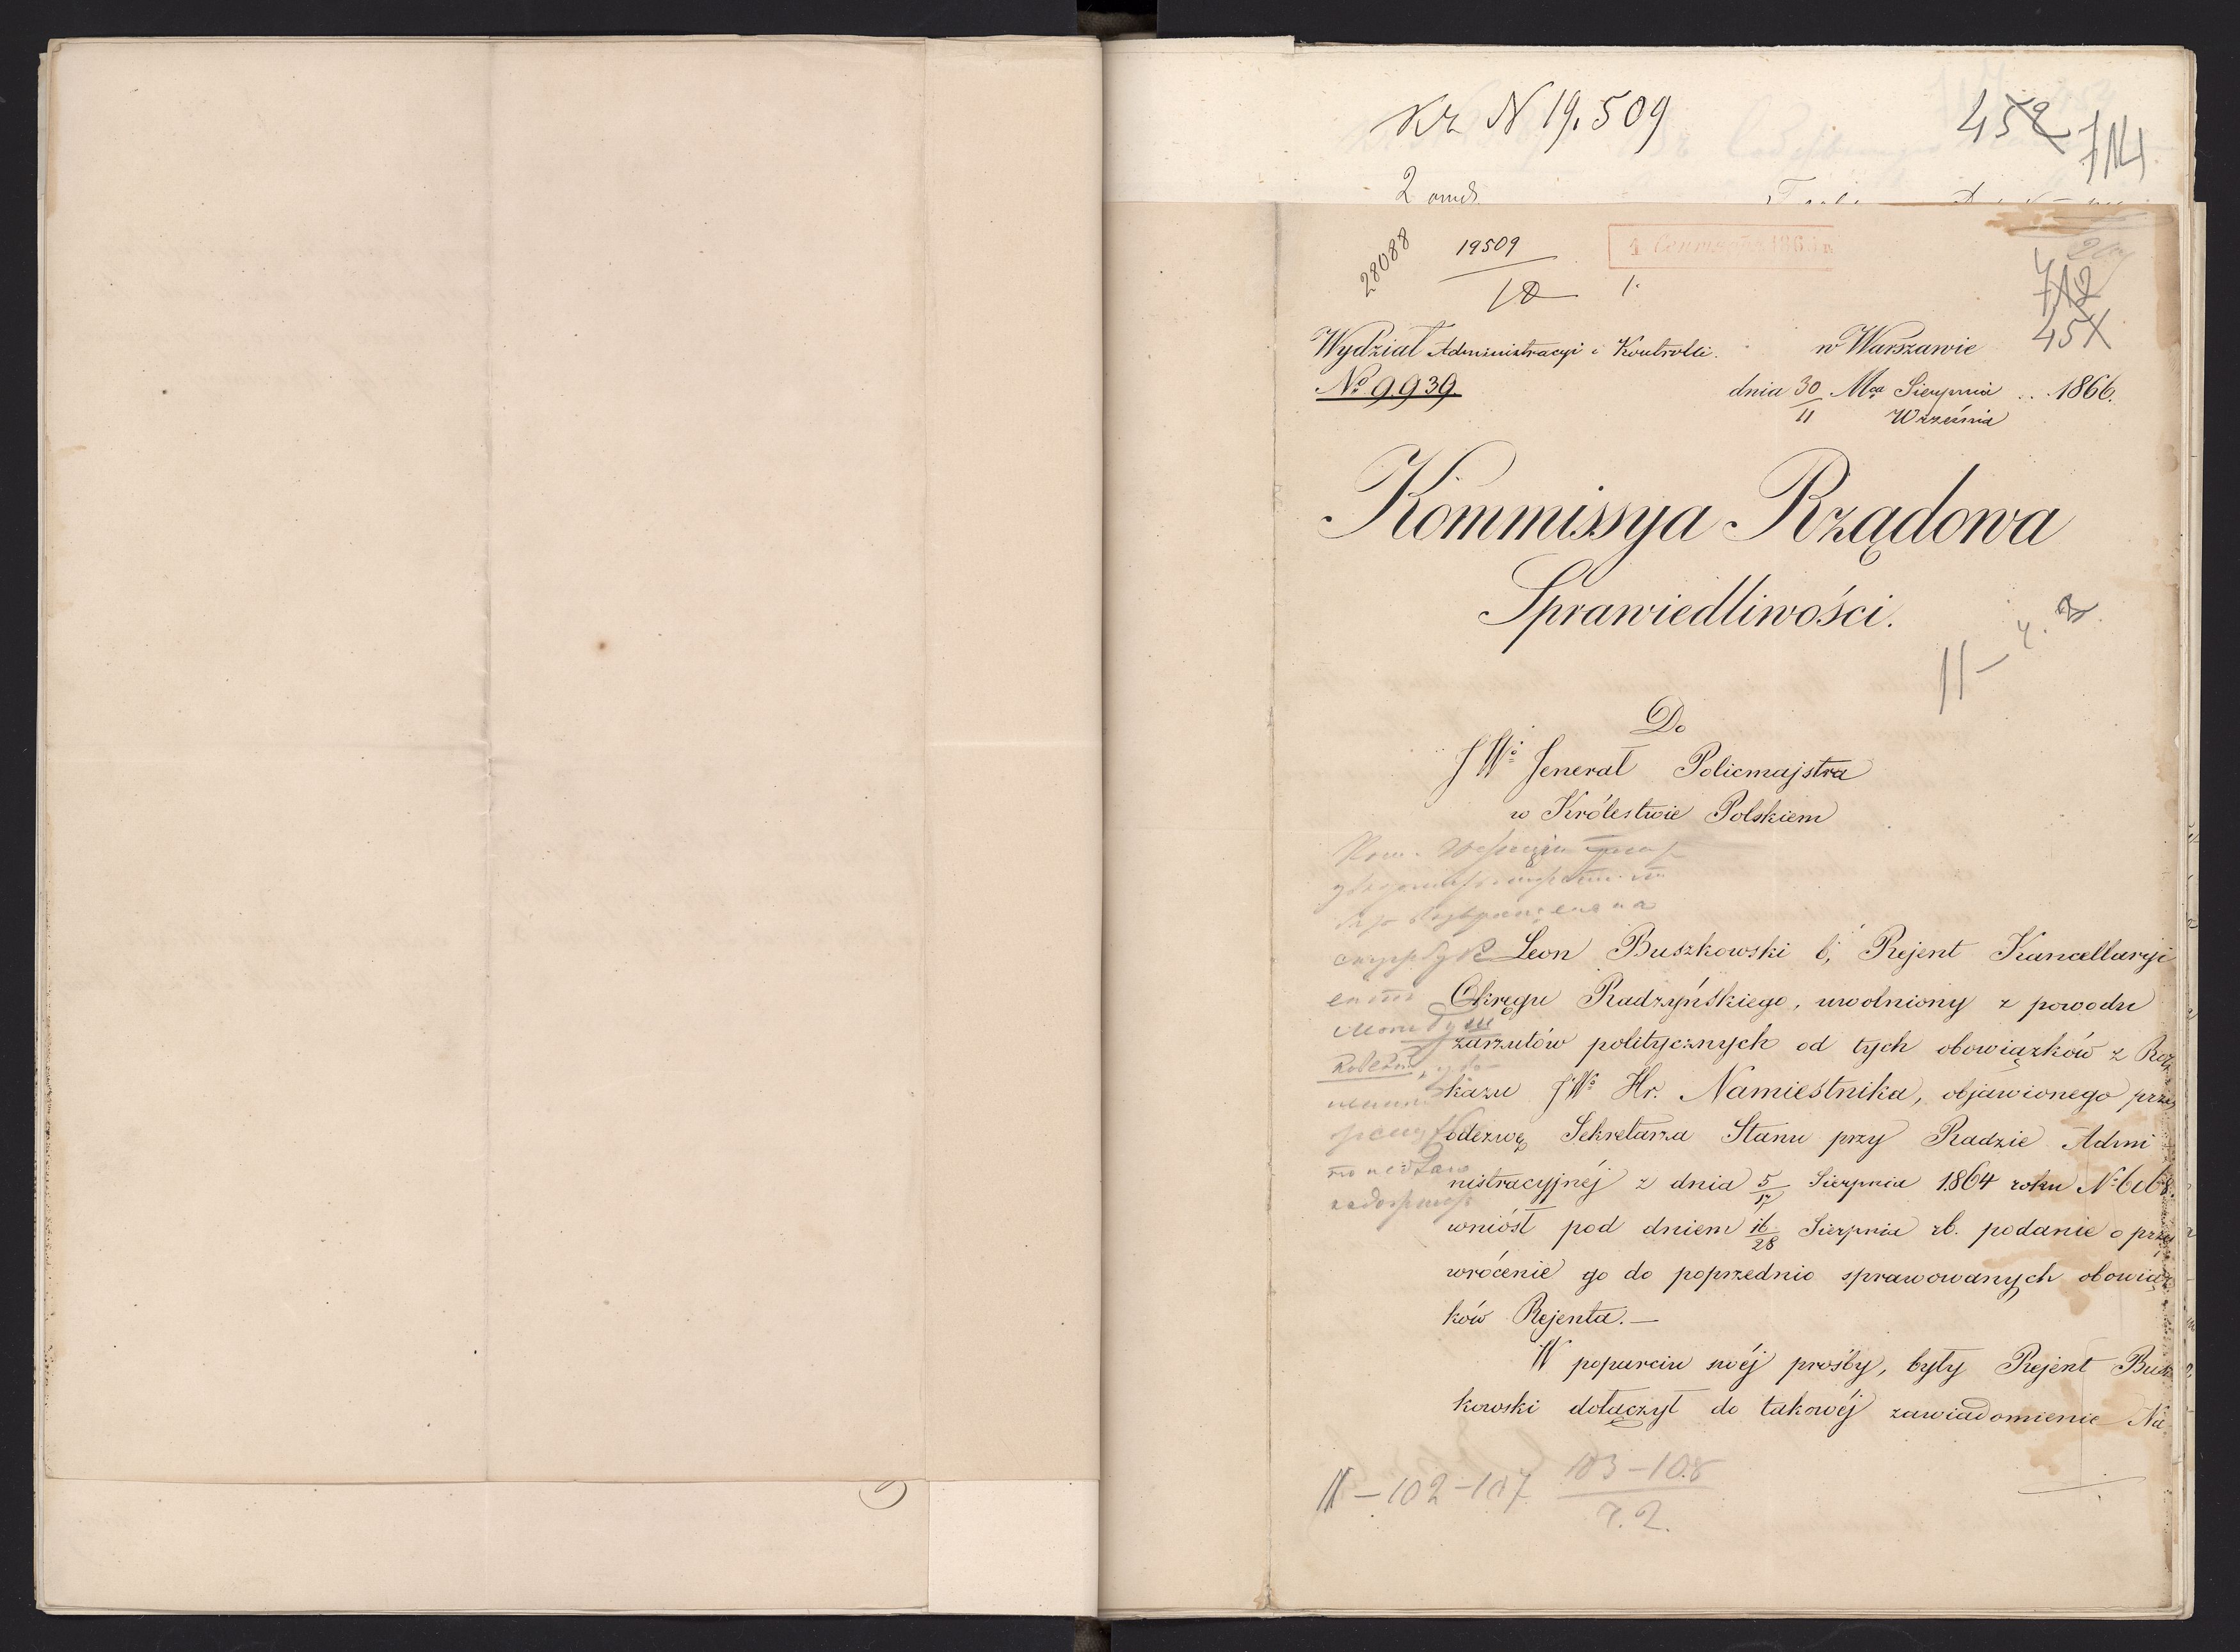 Kr N 19.509
452 714
2
28088 19509
18 1.
712
45X
Wydział Administracyi i Kontrolli. w Warszawie
№ 9939. dnia 30 Mca Sierpnia .. 1866.
11 Września
Kommissya Rządowa
Sprawiedliwości.
Do
JWo Jenerał Policmajstra
w Królestwie Polskiem
Leon Buszkowski b, Rejent Kancellaryi
Okręgu Radzyńskiego, uwolniony z powodu
zarzutów politycznych od tych obowiązków z Roz
kazu JWo Hr. Namiestnika, objawionego przez
odezwę Sekretarza Stanu przy Radzie Admi
nistracyjnéj z dnia 5/17 Sierpnia 1864 roku
wniósł pod dniem 16/28 Sierpnia rb. podanie o przy
wrócenie go do poprzednio sprawowanych obowiąz
ków Rejenta.—
W poparciu swéj prośby, były Rejent Busz
kowski dołączył do takowéj zawiadomienie Na
11 – 102 – 107 103 – 108